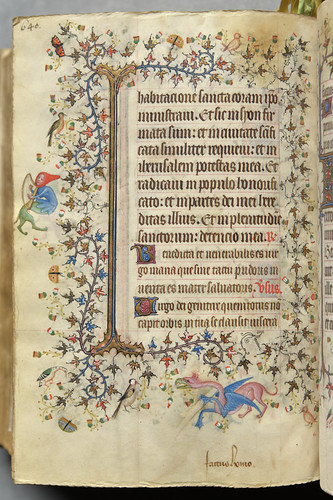 640.
habitacione sancta coram ipo
ministraui. Et sic in syon fir
mata sum: et in ciuitate scīfi
cata similiter requieui: et in
iherusalem potestas mea. Et
radicaui in populo honorifi
cato: et in partes dei mei here
ditas illius. Et in plenitudie
sanctorum: detencio mea. R.
Beata et uenerabilis es uir
go maria que sine tactu pudoris in
uenta es mater saluatoris. Vsus.
Uirgo dei genitrix quem totus no
capit orbis in tua se clausit uiscera
factus homo.